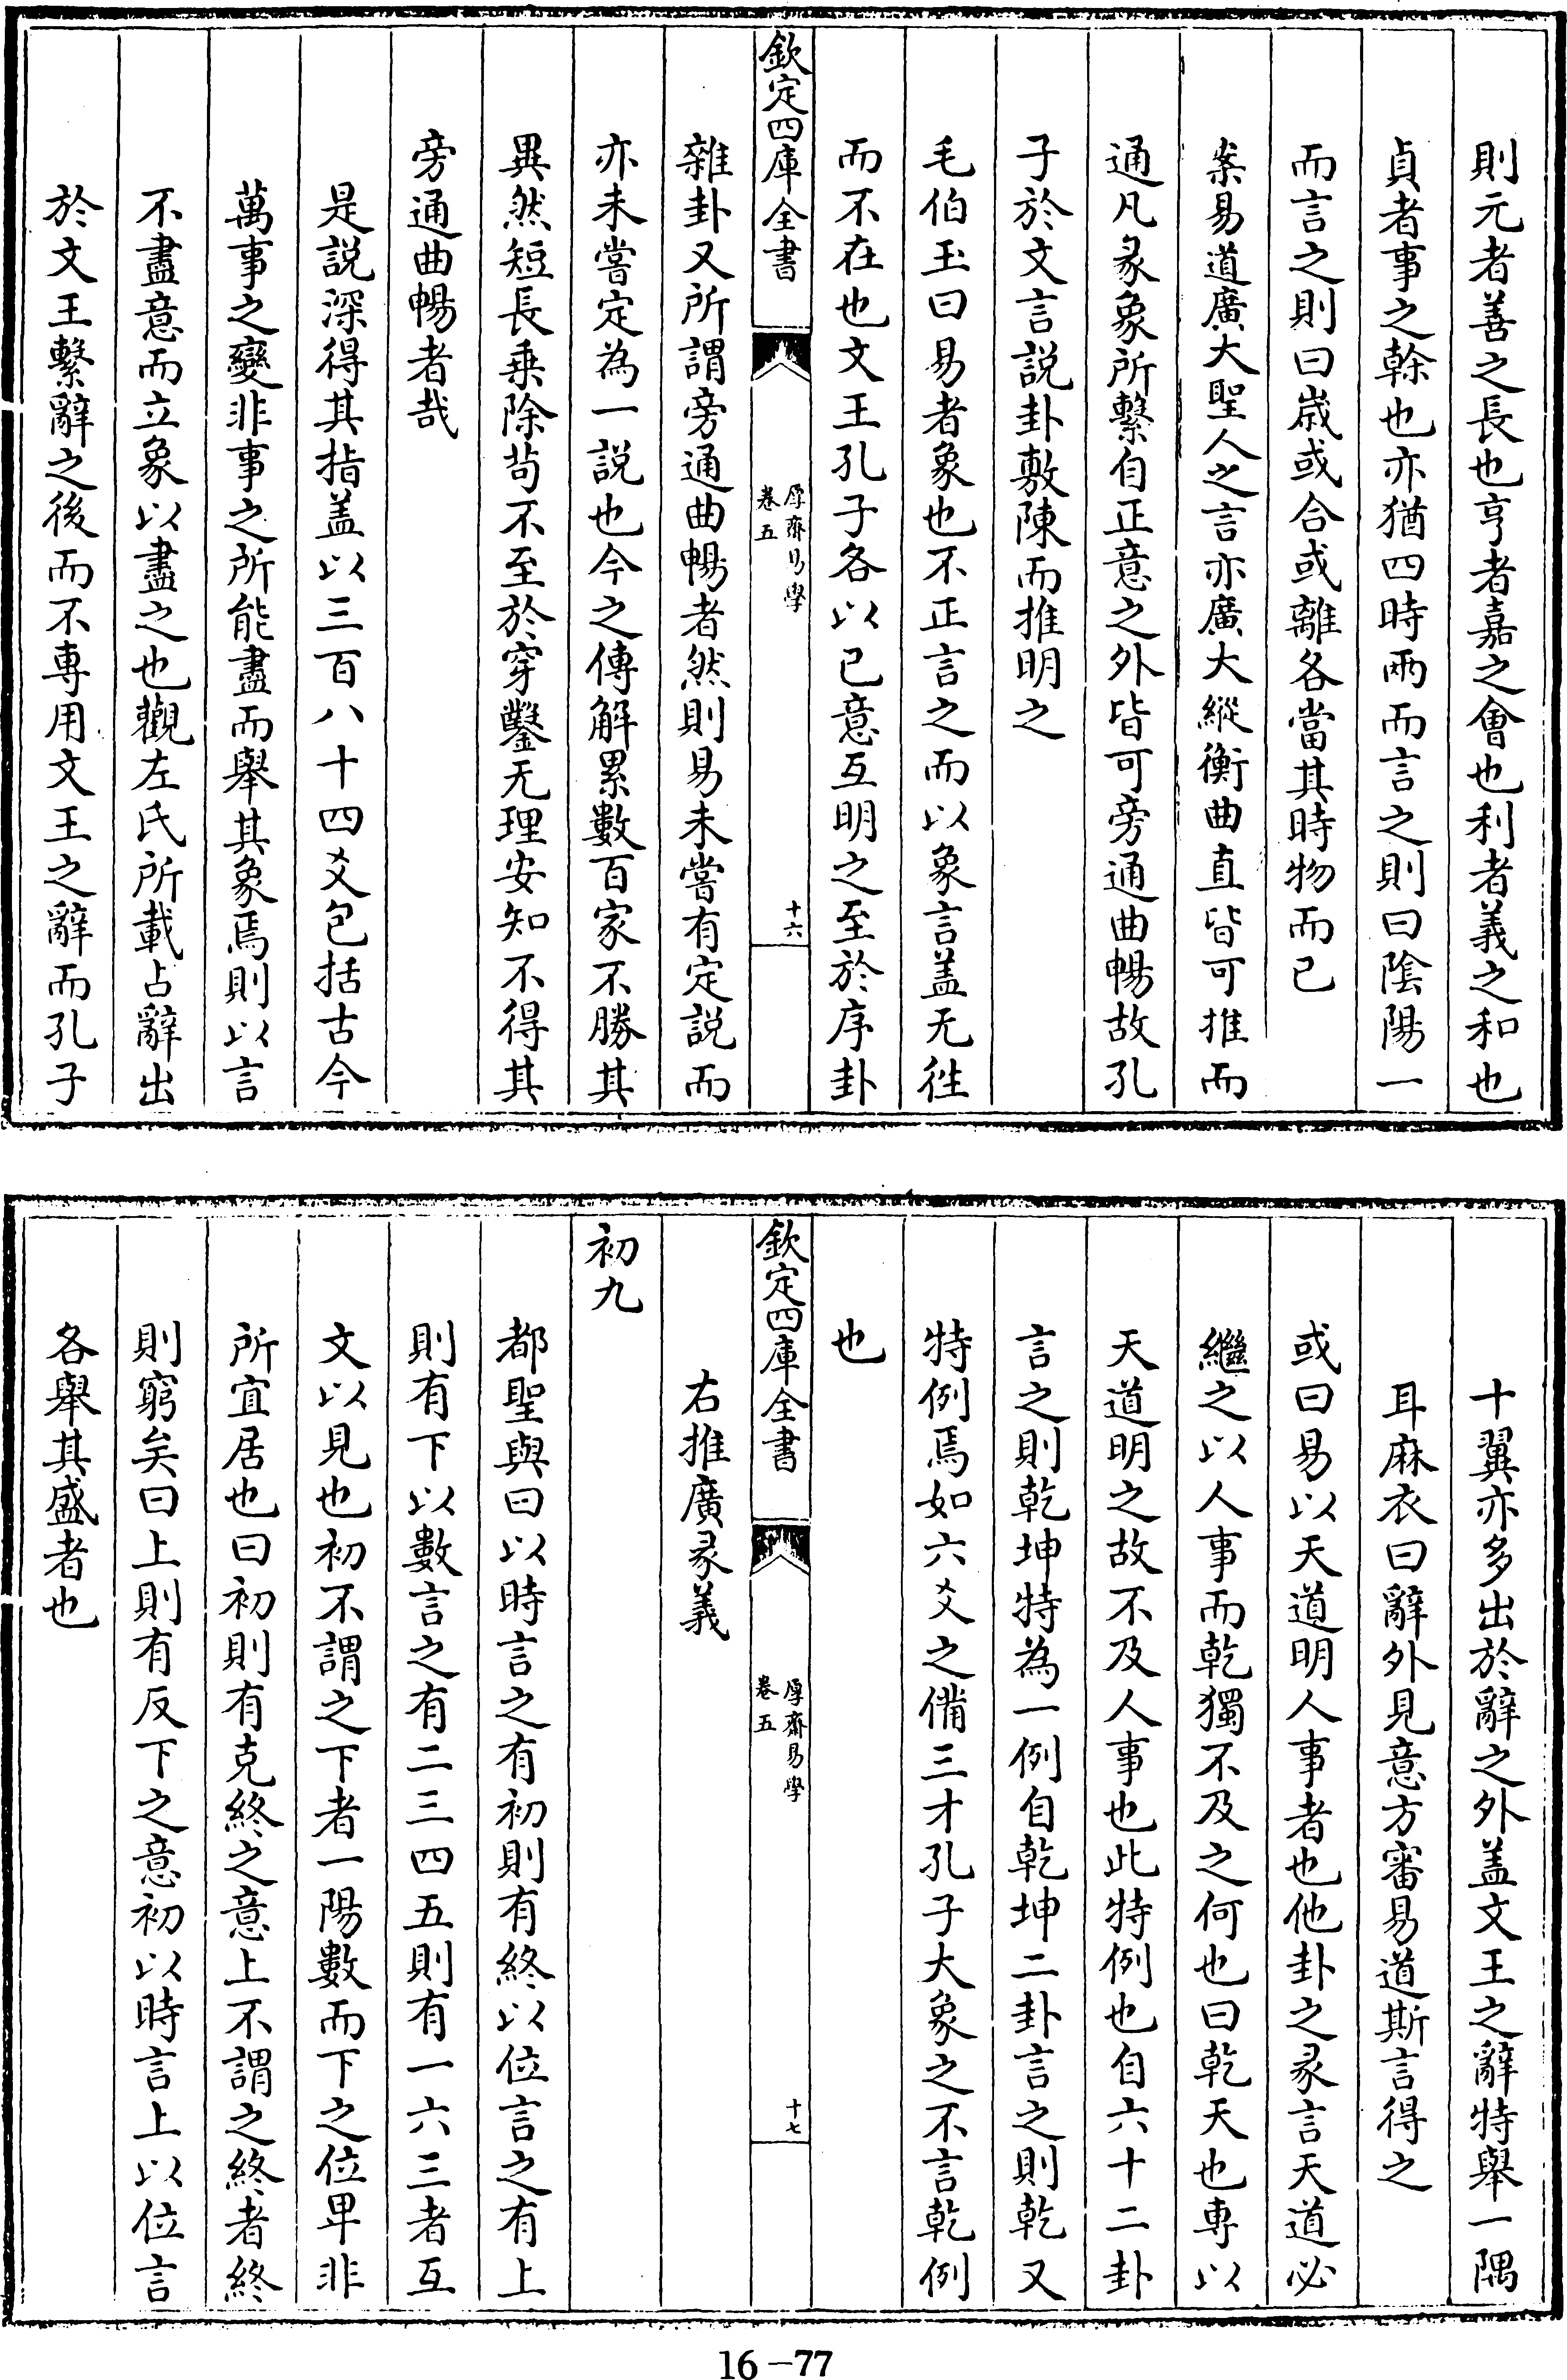 則元者善之長也亨者嘉之會也利者義之和也
貞者事之幹也亦猶四時兩而言之則曰陰陽一
而言之則曰歲或合或離各當其時物而已
案易道廣大聖人之言亦廣大縱衡曲直皆可推而
通凡彖象所繫自正意之外皆可旁通曲暢故孔
子於文言說卦敷陳而推明之
毛伯玉曰易者象也不正言之而以象言盖无徃
而不在也文王孔子各以已意互明之至於序卦
欽定四庫全書
厚齋易學
卷五
十六
雜卦又所謂旁通曲暢者然則易未嘗有定說而
亦未嘗定為一說也今之傳解累數百家不勝其
異然短長乗除茍不至於穿鑿无理安知不得其
旁通曲暢者哉
是說深得其指盖以三百八十四爻包括古今
萬事之變非事之所能盡而舉其象焉則以言
不盡意而立象以盡之也觀左氏所載占辭出
於文王繫辭之後而不專用文王之辭而孔子
十翼亦多出於辭之外盖文王之辭特舉一隅
耳麻衣曰辭外見意方審易道斯言得之
或曰易以天道明人事者也他卦之彖言天道必
繼之以人事而乾獨不及之何也曰乾天也專以
天道明之故不及人事也此特例也自六十二卦
言之則乾坤特為一例自乾坤二卦言之則乾又
特例焉如六爻之備三才孔子大象之不言乾例
也
欽定四庫全書
厚齋易學
卷五
十七
右推廣彖義
初九
都聖與曰以時言之有初則有終以位言之有上
則有下以數言之有二三四五則有一六三者互
文以見也初不謂之下者一陽數而下之位卑非
所宜居也曰初則有克終之意上不謂之終者終
則窮矣曰上則有反下之意初以時言上以位言
各舉其盛者也
16-77